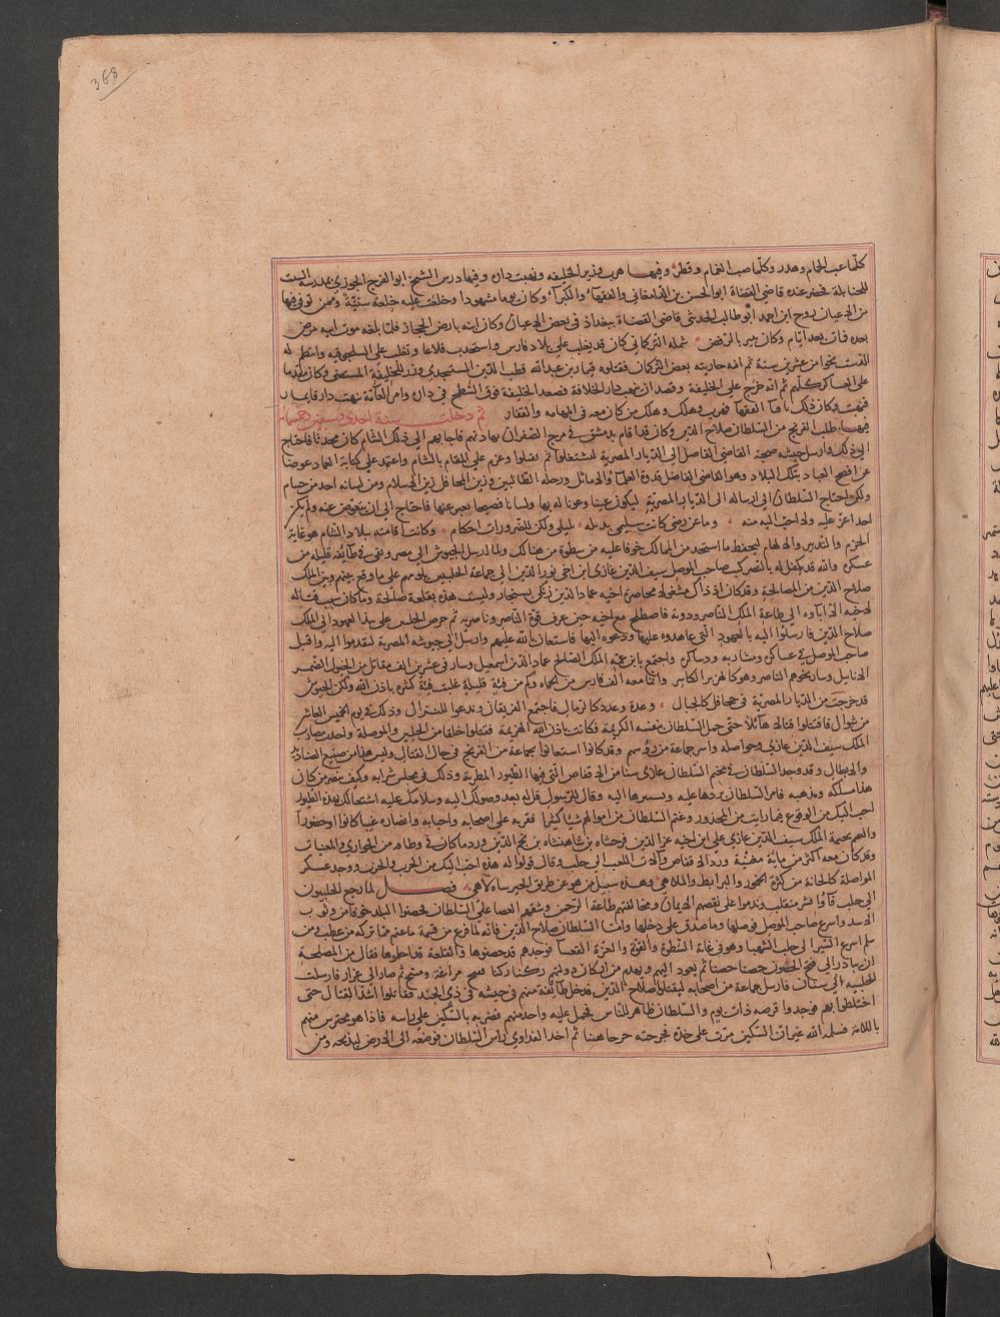 388
كلما عب الحمام وهدر وكلما صب الغمام وقطر وفيها هرب وزير الخليفه ونهبت داره وفيها درس الشيخ ابو الفرج الجوزي بمدرسة الست
للحنابلة فحضر عنده قاضي القضاة ابو الحسن بن الدامغاني والفقهاء والكبرآء وكان يوما مشهودا وخلعت عليه خلعة سنية وممن توفي فيها
من الاعيان روح ابن احمد ابو طالب الحديثي قاضي القضاة ببغداد في بعض الاعيان وكان ابنه بارض الحجاز فلما بلغه موت ابيه مرض
بعده فمات بعد ايام وكان ينبز بالرفض شمله التركماني كان قد تغلب على بلاد فارس واستحدث قلاعا وتغلب على السلجوقيه وانتظم له
الدست نحوا من عشرين سنة ثم انه حاربته بعض التركمان فقتلوه قيماز بن عبد الله قطب الدين المستنجدي وزر للخليفة المستضي وكان مقدما
على العساكر كلهم ثم انه خرج على الخليفة وقصد ان ينهب دار الخلافة فصعد الخليفة فوق السطح في داره وامر العامة بنهب دار قايماز
فنهبت وكان ذلك بافتاء الفقهاء فهرب فهلك وهلك من كان معه في المهامه والقفار ثم دخلت سنة احدى وسبعين وخمسمائة
فيها طلب الفرنج من السلطان صلاح الدين وكان قد اقام بدمشق في مرج الصفر ان يهادنهم فاجابهم الى ذلك لان الشام كان مجدبا فاحتاج
الى ذلك وارسل جيشه صحبة القاضي الفاضل الى الديار المصرية ليشتغلوا ثم يقبلوا وعزم على المقام بالشام واعتمد على كتابة العماد عوضا
عن افصح العباد بتلك البلاد وهو القاضي الفاضل قدوة العلماء والاماثل ورحله الطالبين وزين المحافل زين الاسلام ومن لسانه احد من حسام
ولكن احتاج السلطان الى ارساله الى الديار المصرية ليكون عينا وعونا له بها ولسانا فصيحا يعبر عنها فاحتاج الى ان يتعوض عنه ولم يكن
احد اعز عليه ولا احب اليه منه وما عن رضى كانت سليمى بديله بليلى ولكن للضرورات احكام وكانت اقامته ببلاد الشام هو غاية
الحزم والتدبير والالهام ليحفظ ما استجد من الممالك خوفا عليه من سطوة من هنالك ولما ارسل الجيوش الى مصر وبقي في طائفة قليله من
عسكره والله قد تكفل له بالنصر كتب صاحب الموصل سيف الدين غازي ابن اخي نور الدين الى جماعة الحلبيين يلومهم على ما وقع بينهم وبين الملك
صلاح الدين من المصالحة وقد كان اذ ذاك مشغولا بمحاصرة اخيه عماد الدين زنكي بسنجار وليست هذه بفعلة صالحة وما كان سبب قتاله
لاخيه الا اباوه الى طاعة الملك الناصر ودونه فاصطلح مع اخيه حين عرف قوة الناصر وناصريه ثم حرض الحلبيين على نبذ العهود الى الملك
صلاح الدين فارسلوا اليه بالعهود التي عاهدوه عليها ودعوه اليها فاستعان بالله عليهم وارسل الى جيوشه المصرية ليقدموا اليه واقبل
صاحب الموصل في عساكره ومشاربه ودساكره واجتمع بابن عمه الملك الصالح عماد الدين اسمعيل وسار في عشرين الف مقاتل من الخيول الضمر
وسار نحوهم الناصر وهو كالهزبر الكاسر وانما معه الف فارس من الحماه وكم من فئة قليلة غلبت فئة كثيرة باذن الله ولكن الجيوش
قد خرجت من الديار المصرية في جحافل كالجبال وعدة وعدد كالرمال فاجتمع الفريقان وتدعوا للنزال وذلك في يوم الخميس العاشر
من شوال فاقتتلوا قتالا هائلا حتى حمل السلطان بنفسه الكريمة فكانت باذن الله الهزيمة فقتلوا خلقا من الحلبيين والموصلة واخذت مضارب
الملك سيف الدين غازي وحواصله واسر جماعة من رؤسهم وقد كانوا استعانوا بجماعة من الفرنج في حال القتال وليس هذا من صنيع الصناديد
والابطال وقد وجد السلطان في مخيم السلطان غازي سننا من الاقفاص التي فيها الطيور المطربة وذلك في مجلس شرابه وكيف ينصر من كان
هذا مسلكه ومذهبه فامر السلطان بردها عليه وبسيرها اليه وقال للرسول قل له بعد وصولك اليه وسلامك عليه اشتغالك بهذه الطيور
احب اليك من الوقوع فيما رايت من المحذور وغنم السلطان من اموالهم شيئا كثيرا ففرقه على اصحابه واحبابه وانصاره غيبا كانوا او حضورا
وانعم بخيمة الملك سيف الدين غازي على ابن اخيه عز الدين فرخشاه بن شاهنشاه بن نجم الدين ورد ما كان في وطاقه من الجواري والمغنيات
وقد كان معه اكثر من ماية مغنية ورد الاقفاص والات اللعب الى حلب وقال قولوا له هذه احب اليك من الحرب والحزب ووجد عسكر
المواصلة كالحانة من كثرة الخمور والبرابط والملاهي وهذه سبيل من هو عن طريق الخير ساه لاهي فصل لما رجع الحلبيون
الى حلب فآؤا بشر منقلب وندموا على نقضهم الايمان ومخالفتهم طاعة الرحمن وشقهم العصا على السلطان فحصنوا البلد خوفا من وثوب
الاسد واسرع صاحب الموصل فوصلها وما صدق على دخلها واما السلطان صلاح الدين فانه لما فرغ من قسمة ما غنم مما تركه من عطب ومن
سلم اسرع السير الى حلب الشهبا وهو في غاية السطوة والقوة والعزة القعسا فوجدهم قد حصنوها والقلعة قد احاطوها فقال من المصلحة
ان يبادر الى فتح الحصون حصنا حصنا ثم يعود اليهم ويهدم من اركان دولتهم ركنا ركنا ففتح مراغة ومنبج ثم صار الى عزاز فارسلت
الحلبيه الى سنان فارسل جماعة من اصحابه ليقتلوا صلاح الدين فدخل طائفة منهم في جيشه في ذي الجند فقاتلوا اشد القتال حتى
اختلطوا بهم فوجدوا فرصه ذات يوم والسلطان ظاهر للناس فحمل عليه واحد منهم فضربه بالسكين على راسه فاذا هو محترس منهم
باللامه فسلمه الله غير ان السكين مرت على خده فجرحته جرحا هينا ثم اخذ الفداوي راس السلطان فوضعه الى الارض ليذبحه ومن